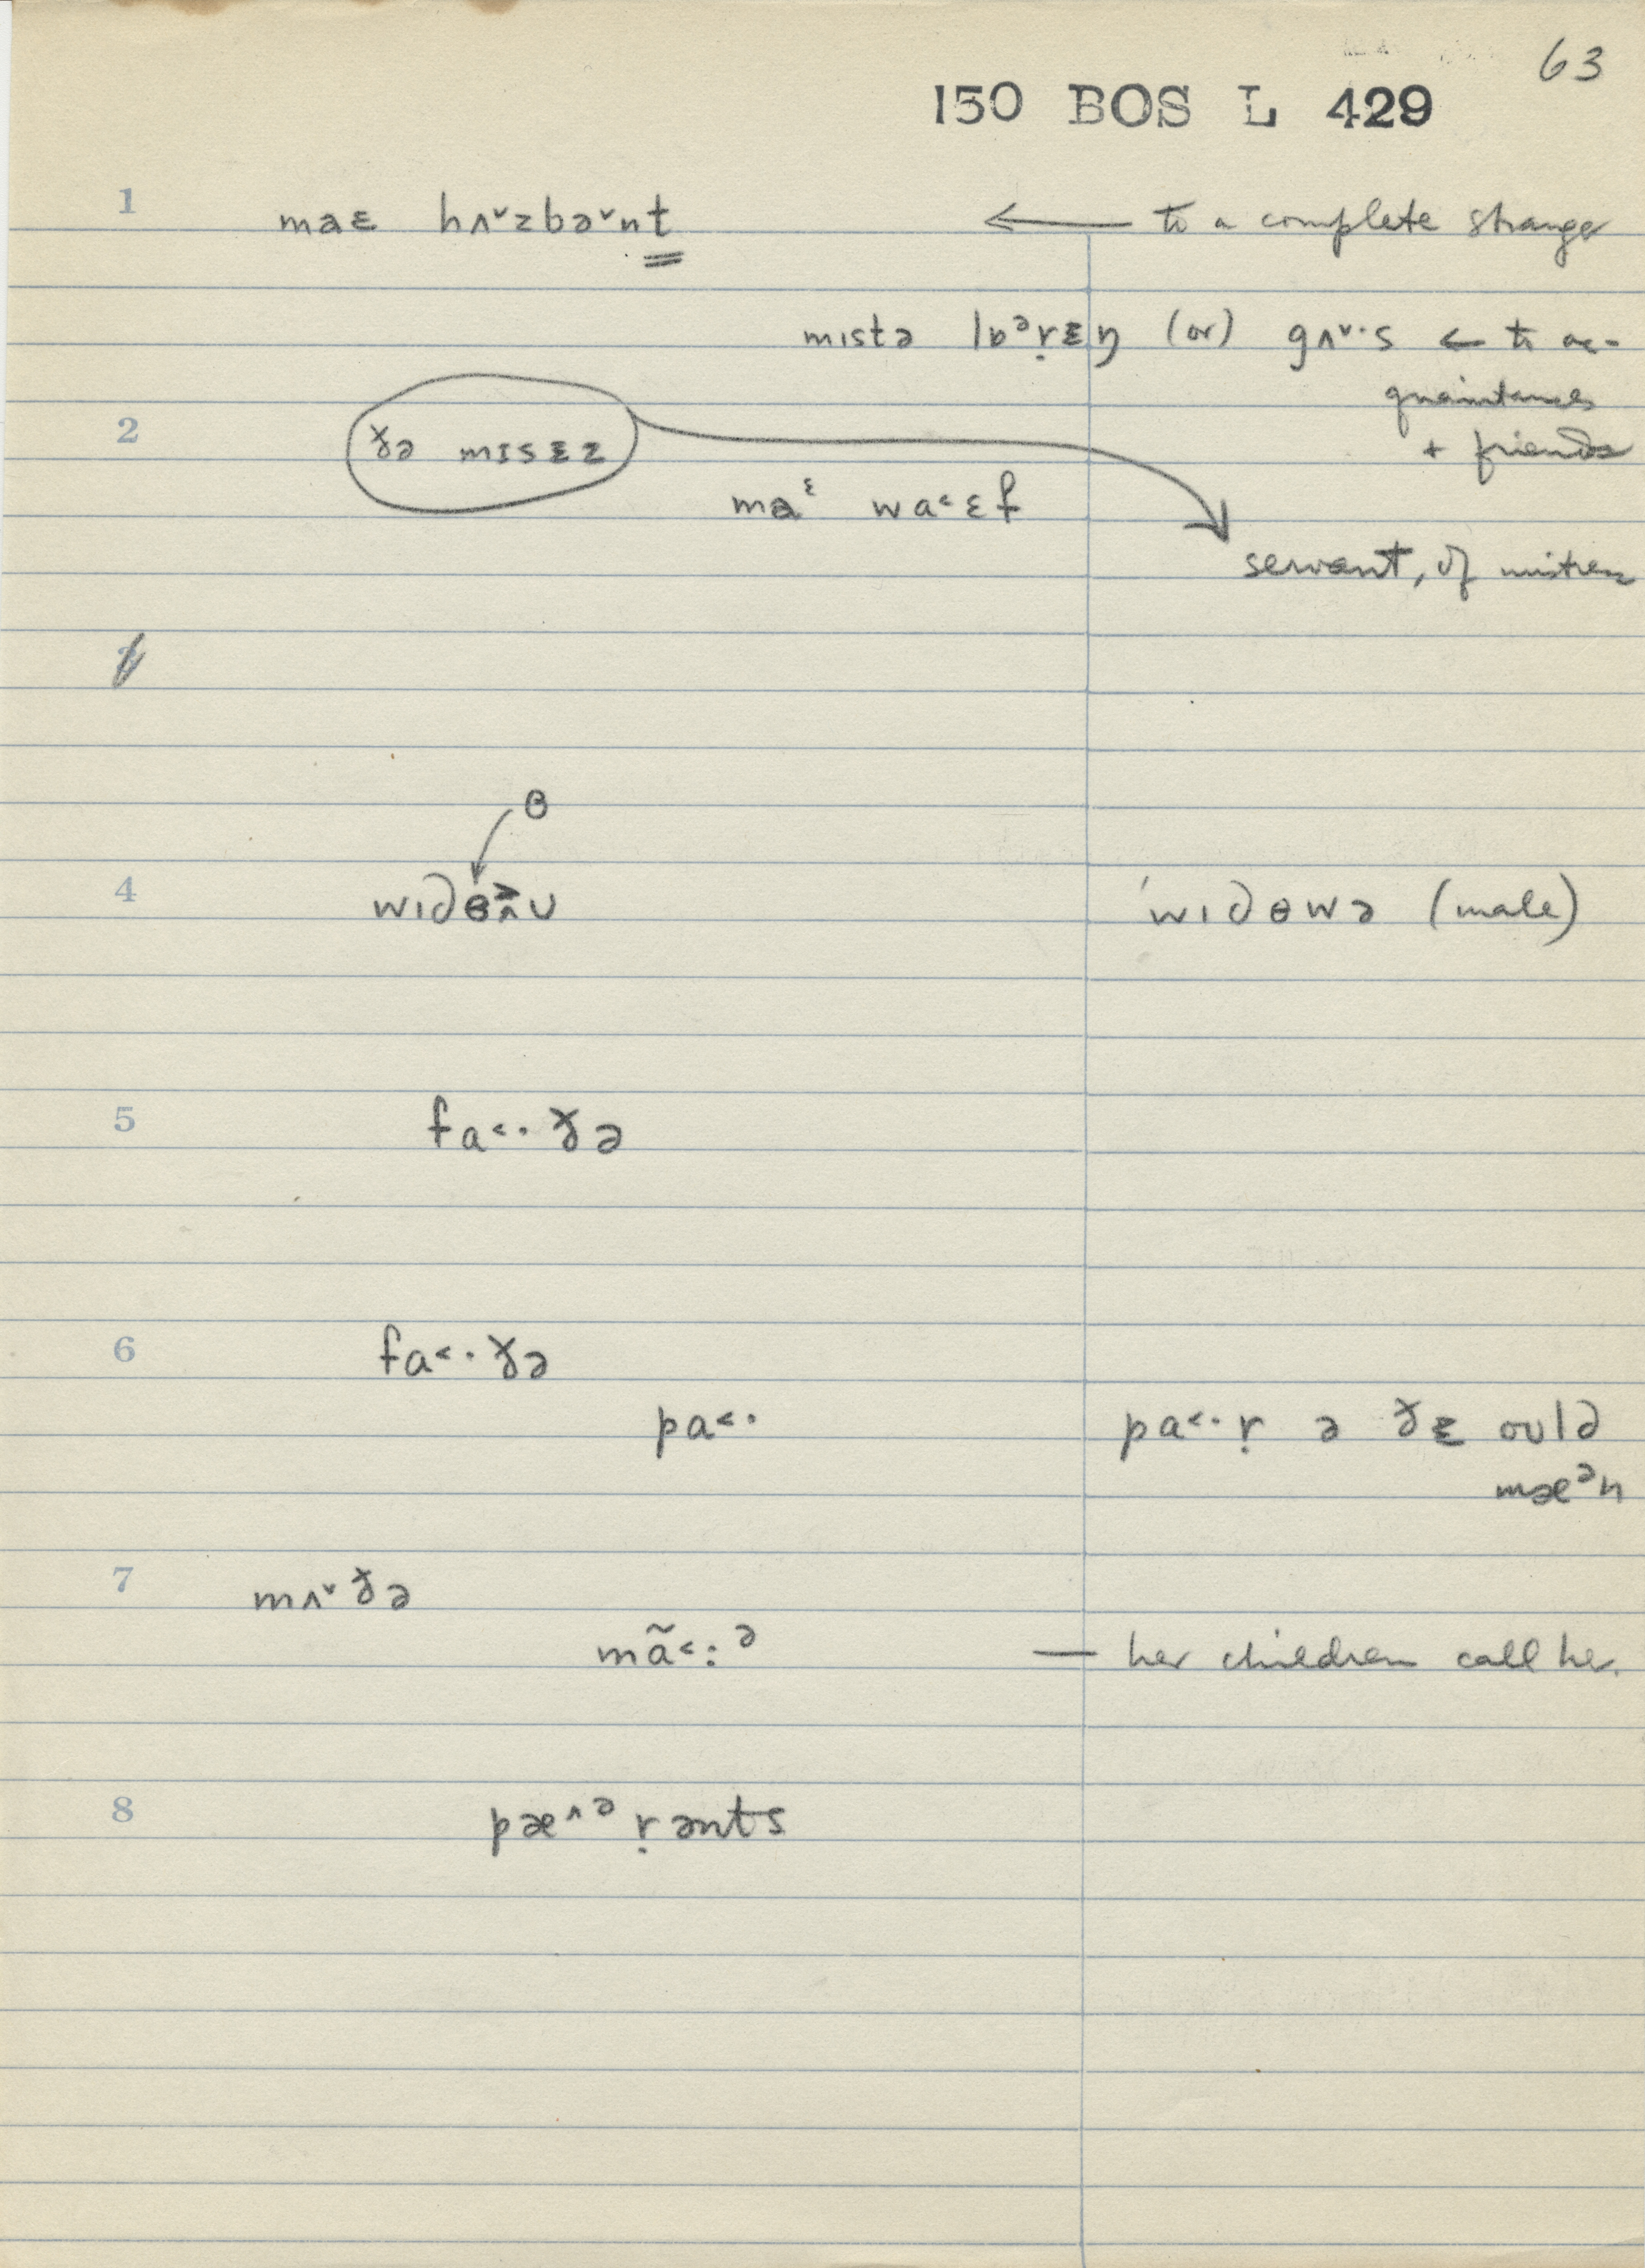 63
150 BOS L 429
1 maɛ hʌ˅zbə˅nt ← to a complete stranger
mɪstə lɒᵊṛɛŋ (or) gʌ˅·s ← to ac-
quaintances
+ friends
2 ðə mɪsɛz
maᵋ wa˂ɛf
servant, of mistress
3
ɵ
4 wɪdɵʌu ˈwɪdɵwə (male)
5 fa˂·ðə
6 fa˂·ðə
pa˂· pa˂·ṛ ə ðɛ ould
mæᵊn
7 mʌ˅ðə
mã˂:ᵊ — her children call her.
8 pæ^ᵊṛənts